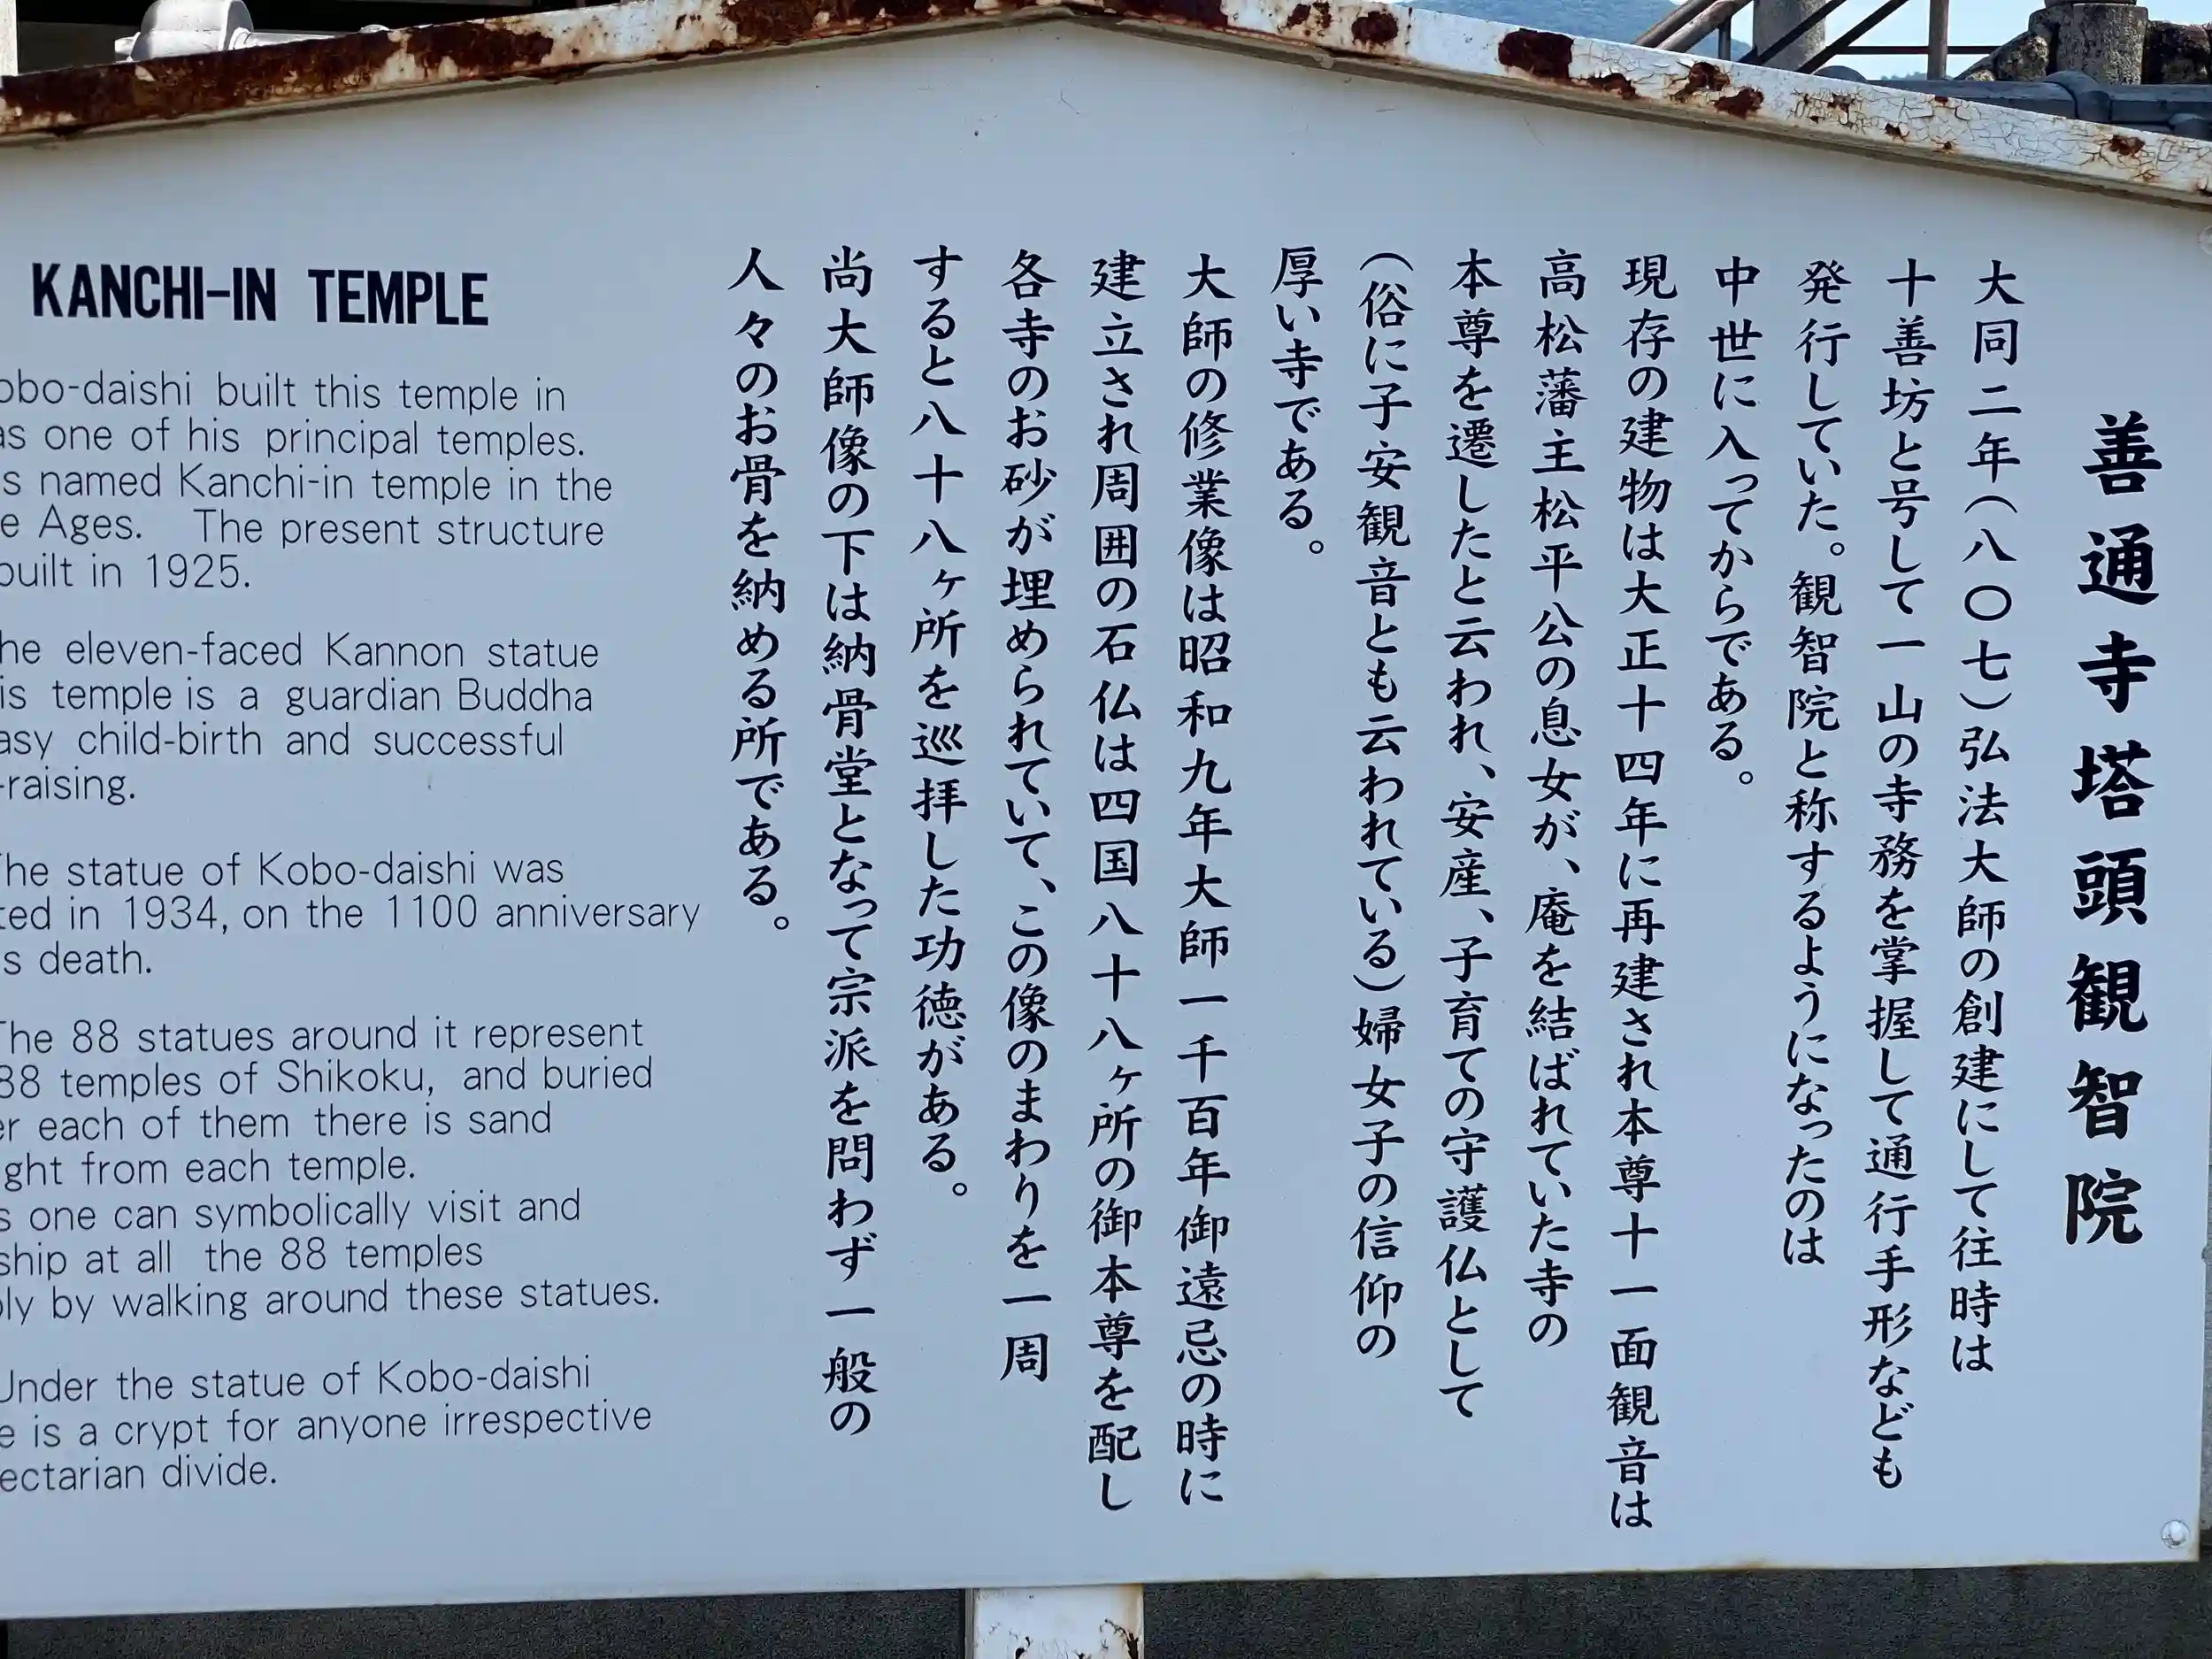 善通寺塔頭観智院
大同二年(八〇七)弘法大師の創建にして往時は
十善坊と号して一山の寺務を掌握して通行手形なども
発行していた。観智院と称するようになったのは
中世に入ってからである。
現存の建物は大正十四年に再建され本尊十一面観音は
高松藩主松平公の息女が、庵を結ばれていた寺の
本尊を遷したと云われ、安産、子育ての守護仏として
(俗に子安観音とも云われている)婦女子の信仰の
厚い寺である。
大師の修業像は昭和九年大師一千百年御遠忌の時に
建立され周囲の石仏は四国八十八ヶ所の御本尊を配し
各寺のお砂が埋められていて、この像のまわりを一周
すると八十八ヶ所を巡拝した功徳がある。
尚大師像の下は納骨堂となって宗派を問わず一般の
人々のお骨を納める所である。
KANCHI-IN TEMPLE
obo-daishi built this temple in
as one of his principal temples.
s named Kanchi-in temple in the
e Ages. The present structure
built in 1925.
he eleven-faced Kannon statue
is temple is a guardian Buddha
asy child-birth and successful
-raising.
The statue of Kobo-daishi was
ted in 1934, on the 1100 anniversary
s death.
The 88 statues around it represent
88 temples of Shikoku, and buried
er each of them there is sand
ght from each temple.
s one can symbolically visit and
ship at all the 88 temples
ply by walking around these statues.
Under the statue of Kobo-daishi
e is a crypt for anyone irrespective
ectarian divide.